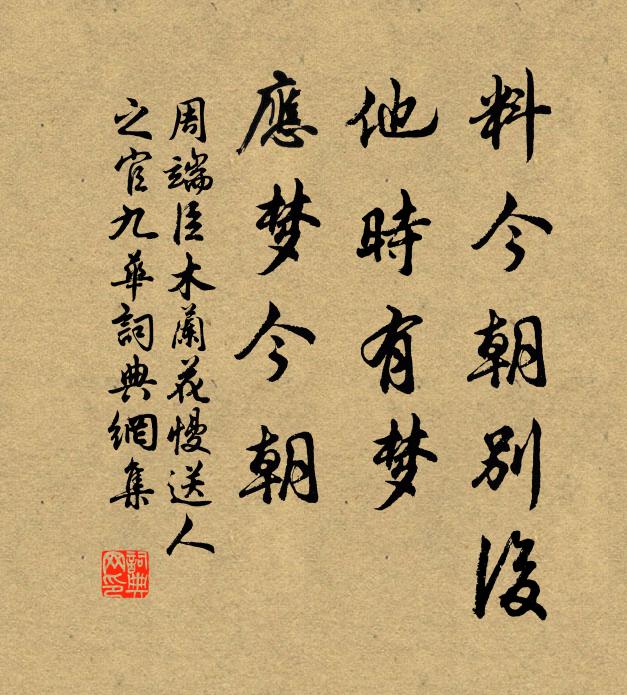 料今朝別後
他時有梦
應梦今朝
周端臣木蘭花慢送人
之官九華詞典網集
詞典
网印